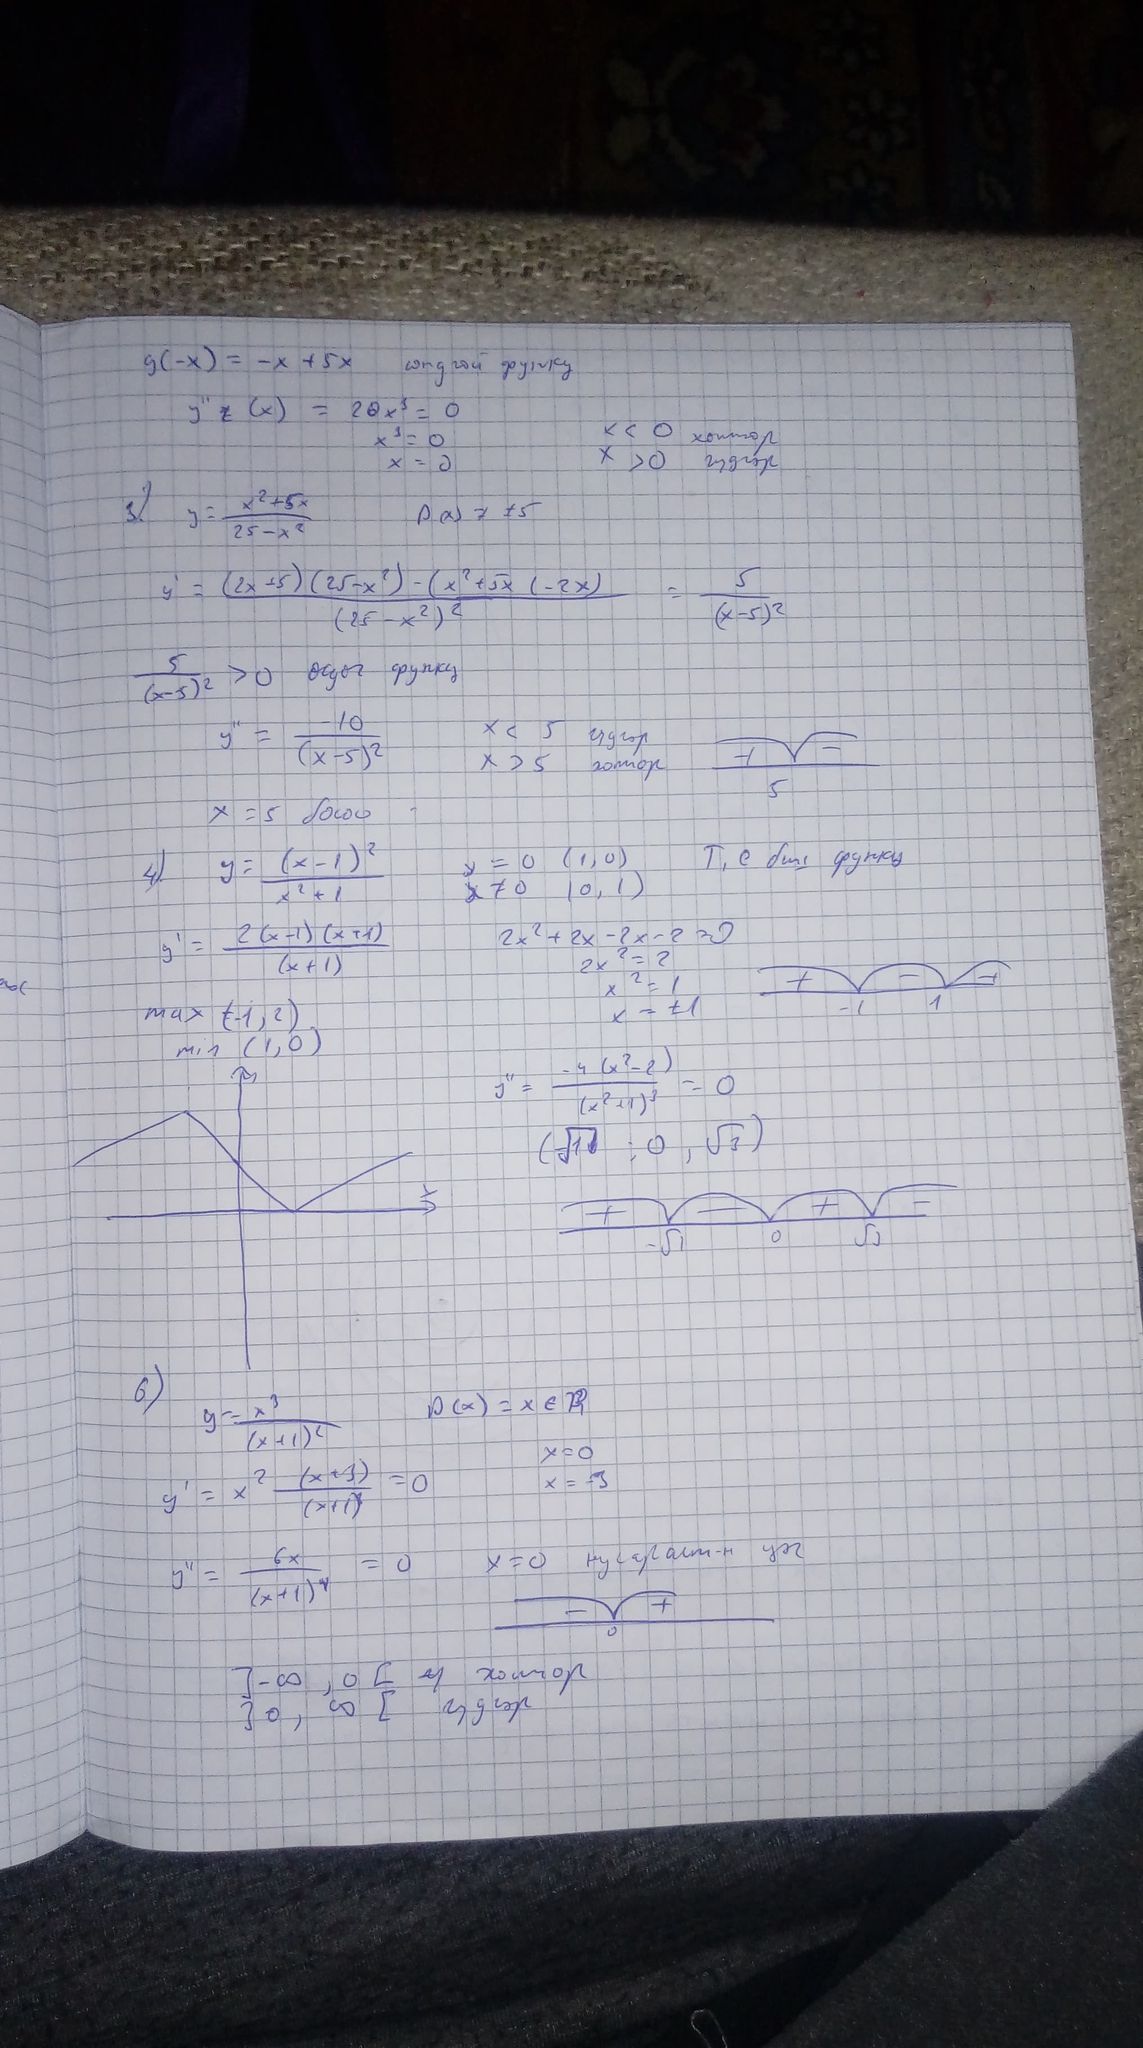 y(-x) = -x + 5x сондгой функц
y'' (x) = 20x³ = 0
x³ = 0 x < 0 хотгор
x = 0 x > 0 гүдгэр
3) y = (x²+5x)/(25-x²) D(x) ≠ ±5
y' = ((2x+5)(25-x²) - (x²+5x (-2x))/(25-x²)² = 5/(x-5)²
5/(x-5)² > 0 өсдөг функц
y'' = -10/(x-5)² x < 5 гүдгэр + -
x > 5 хотгор 5
x = 5 босоо
4) y = (x-1)²/(x²+1) y = 0 (1,0) функц
x ≠ 0 (0,1)
y' = 2(x-1)(x+1)/(x+1) 2x²+2x-2x-2=0
2x² = 2
x² = 1 + - +
x = ±1 -1 1
max (-1, 2)
min (1,0)
y
x
y'' = -4(x²-2)/(x²+1)³ = 0
; 0, √3)
+ - + -
0
6)
y = x³/(x+1)² D(x) = x ∈ R
x=0
y' = x² (x+3)/(x+1)³ = 0 x = -3
y'' = 6x/(x+1)⁴ = 0 x=0 цэг
- +
0
]-∞, 0[ хотгор
]0, ∞[ гүдгэр